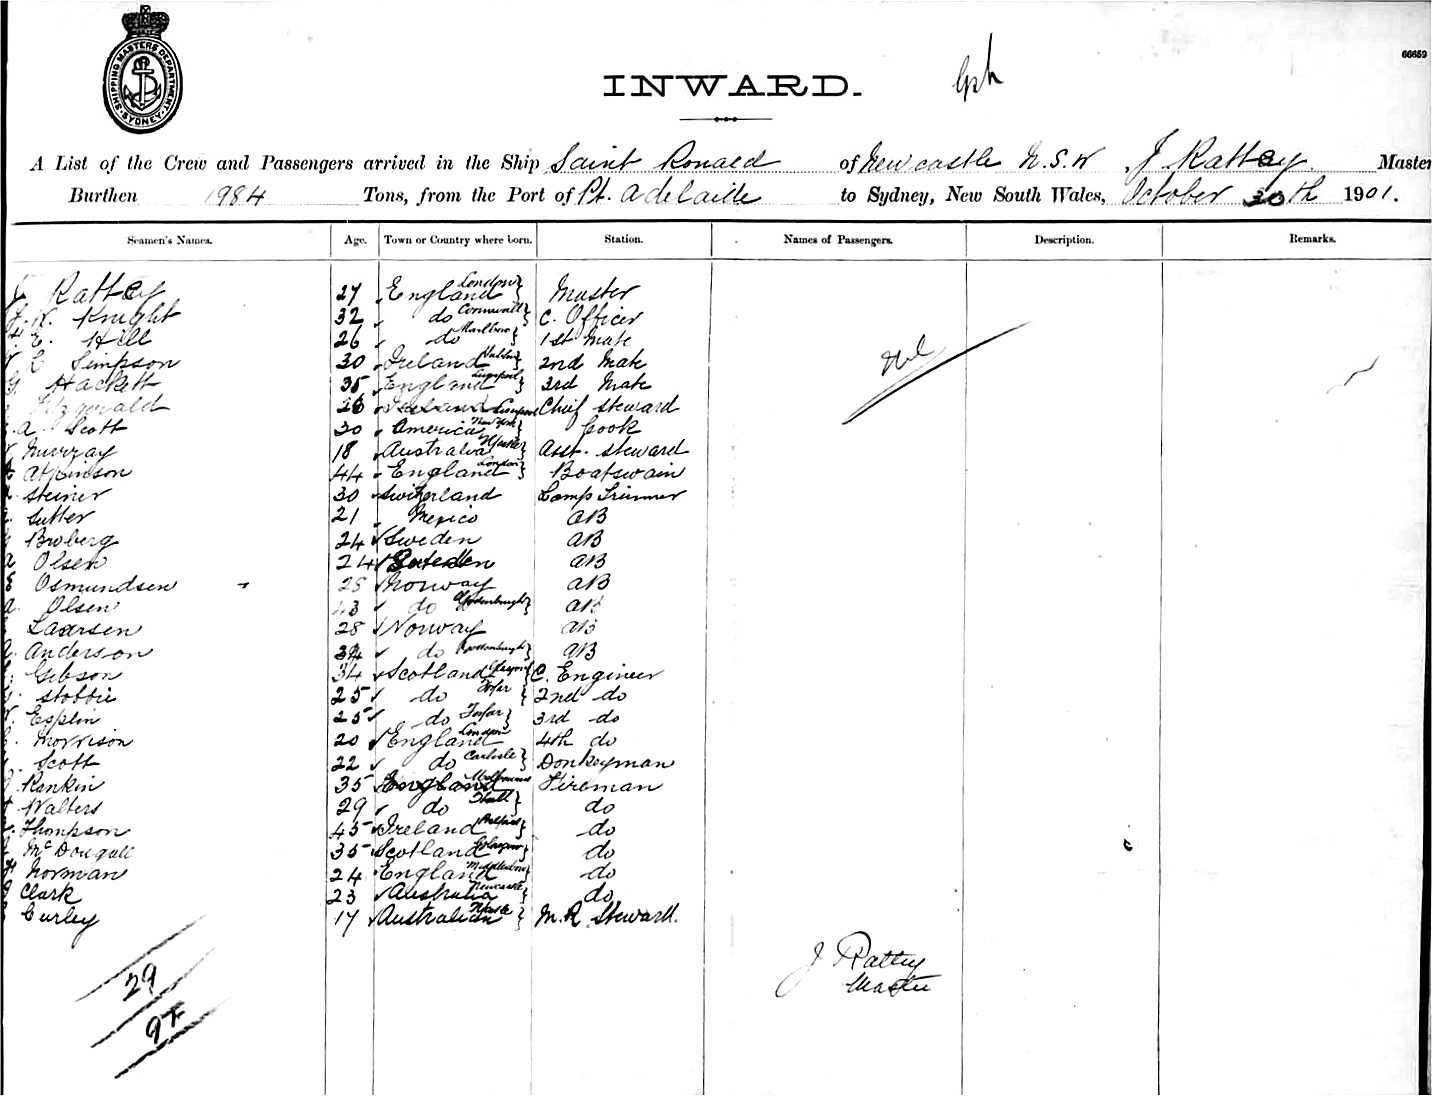 SHIPPING MASTERS DEPARTMENT. SYDNEY
66659
INWARD.
A List of the Crew and Passengers arrived in the Ship Saint Ronald of Newcastle N.S.W J Rattey Master
Burthen 1984 Tons, from the Port of Pt. Adelaide to Sydney, New South Wales, October 30th 1901.
Seamen's Names. Age. Town or Country where born. Station. Names of Passengers. Description. Remarks.
Rattey 27 England London Master
Knight 32 do Cornwall C. Officer
E. Hill 26 do 1st Mate
E Simpson 30 Ireland Dublin 2nd Mate
G Hackett 35 England Liverpool 3rd Mate
Fitzgerald 26 Ireland Liverpool Chief Steward
A. Scott 30 America New York Cook
Murray 18 Australia N'castle Asst. Steward
Atkinson 44 England London Boatswain
Steiner 30 Switzerland Lamp Trimmer
Sutter 21 Mexico AB
Broberg 24 Sweden AB
Olsen 24 AB
Osmundsen 28 Norway AB
A. Olsen 43 do AB
Laarsen 28 Norway AB
Anderson 34 do AB
Gibson 34 Scotland Glasgow C. Engineer
Stobbie 25 do Forfar 2nd do
Esplin 25 do Forfar 3rd do
Morrison 20 England London 4th do
Scott 22 do Carlisle Donkeyman
Rankin 35 England Melbourne Fireman
Walters 29 do Hull do
Thompson 45 Ireland Belfast do
McDougall 35 Scotland Glasgow do
Norman 24 England Middlesboro do
Clark 23 Australia Newcastle do
Curley 17 Australian N'castle M.R Steward.
Nil
J Rattey
Master
29